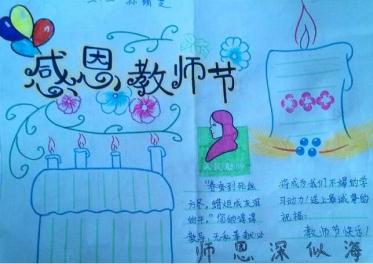 感恩教师节
"春蚕到死丝
方尽,蜡炬成灰泪
始干。"您的谆谆
教导,无私奉献必
将成为我们不竭的学
习动力!送上最诚挚的
祝福:
教师节快乐!
师恩深似海